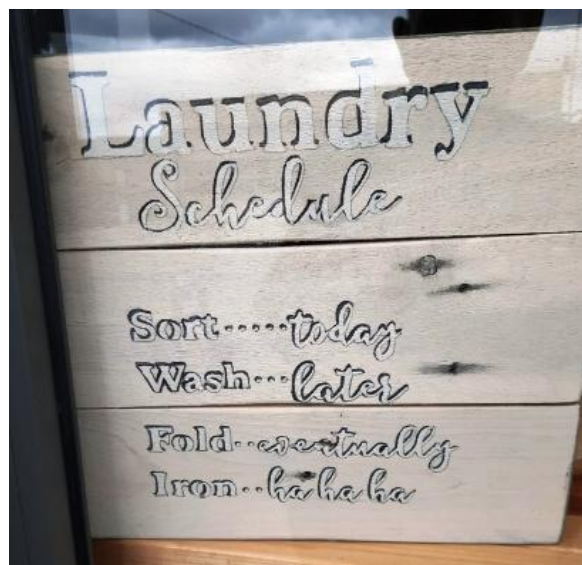 Laundry
Schedule
Sort.....today
Wash...later
Fold..eventually
Iron..ha ha ha